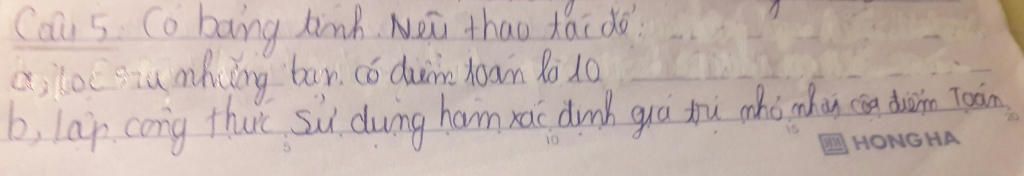 Câu 5. Có bảng tính. Nêu thao tác để:
a, lọc ra những bạn có điểm toán là 10
b, lập công thức sử dụng hàm xác định giá trị nhỏ nhất của điểm Toán
5 10 15 20
HONG HA